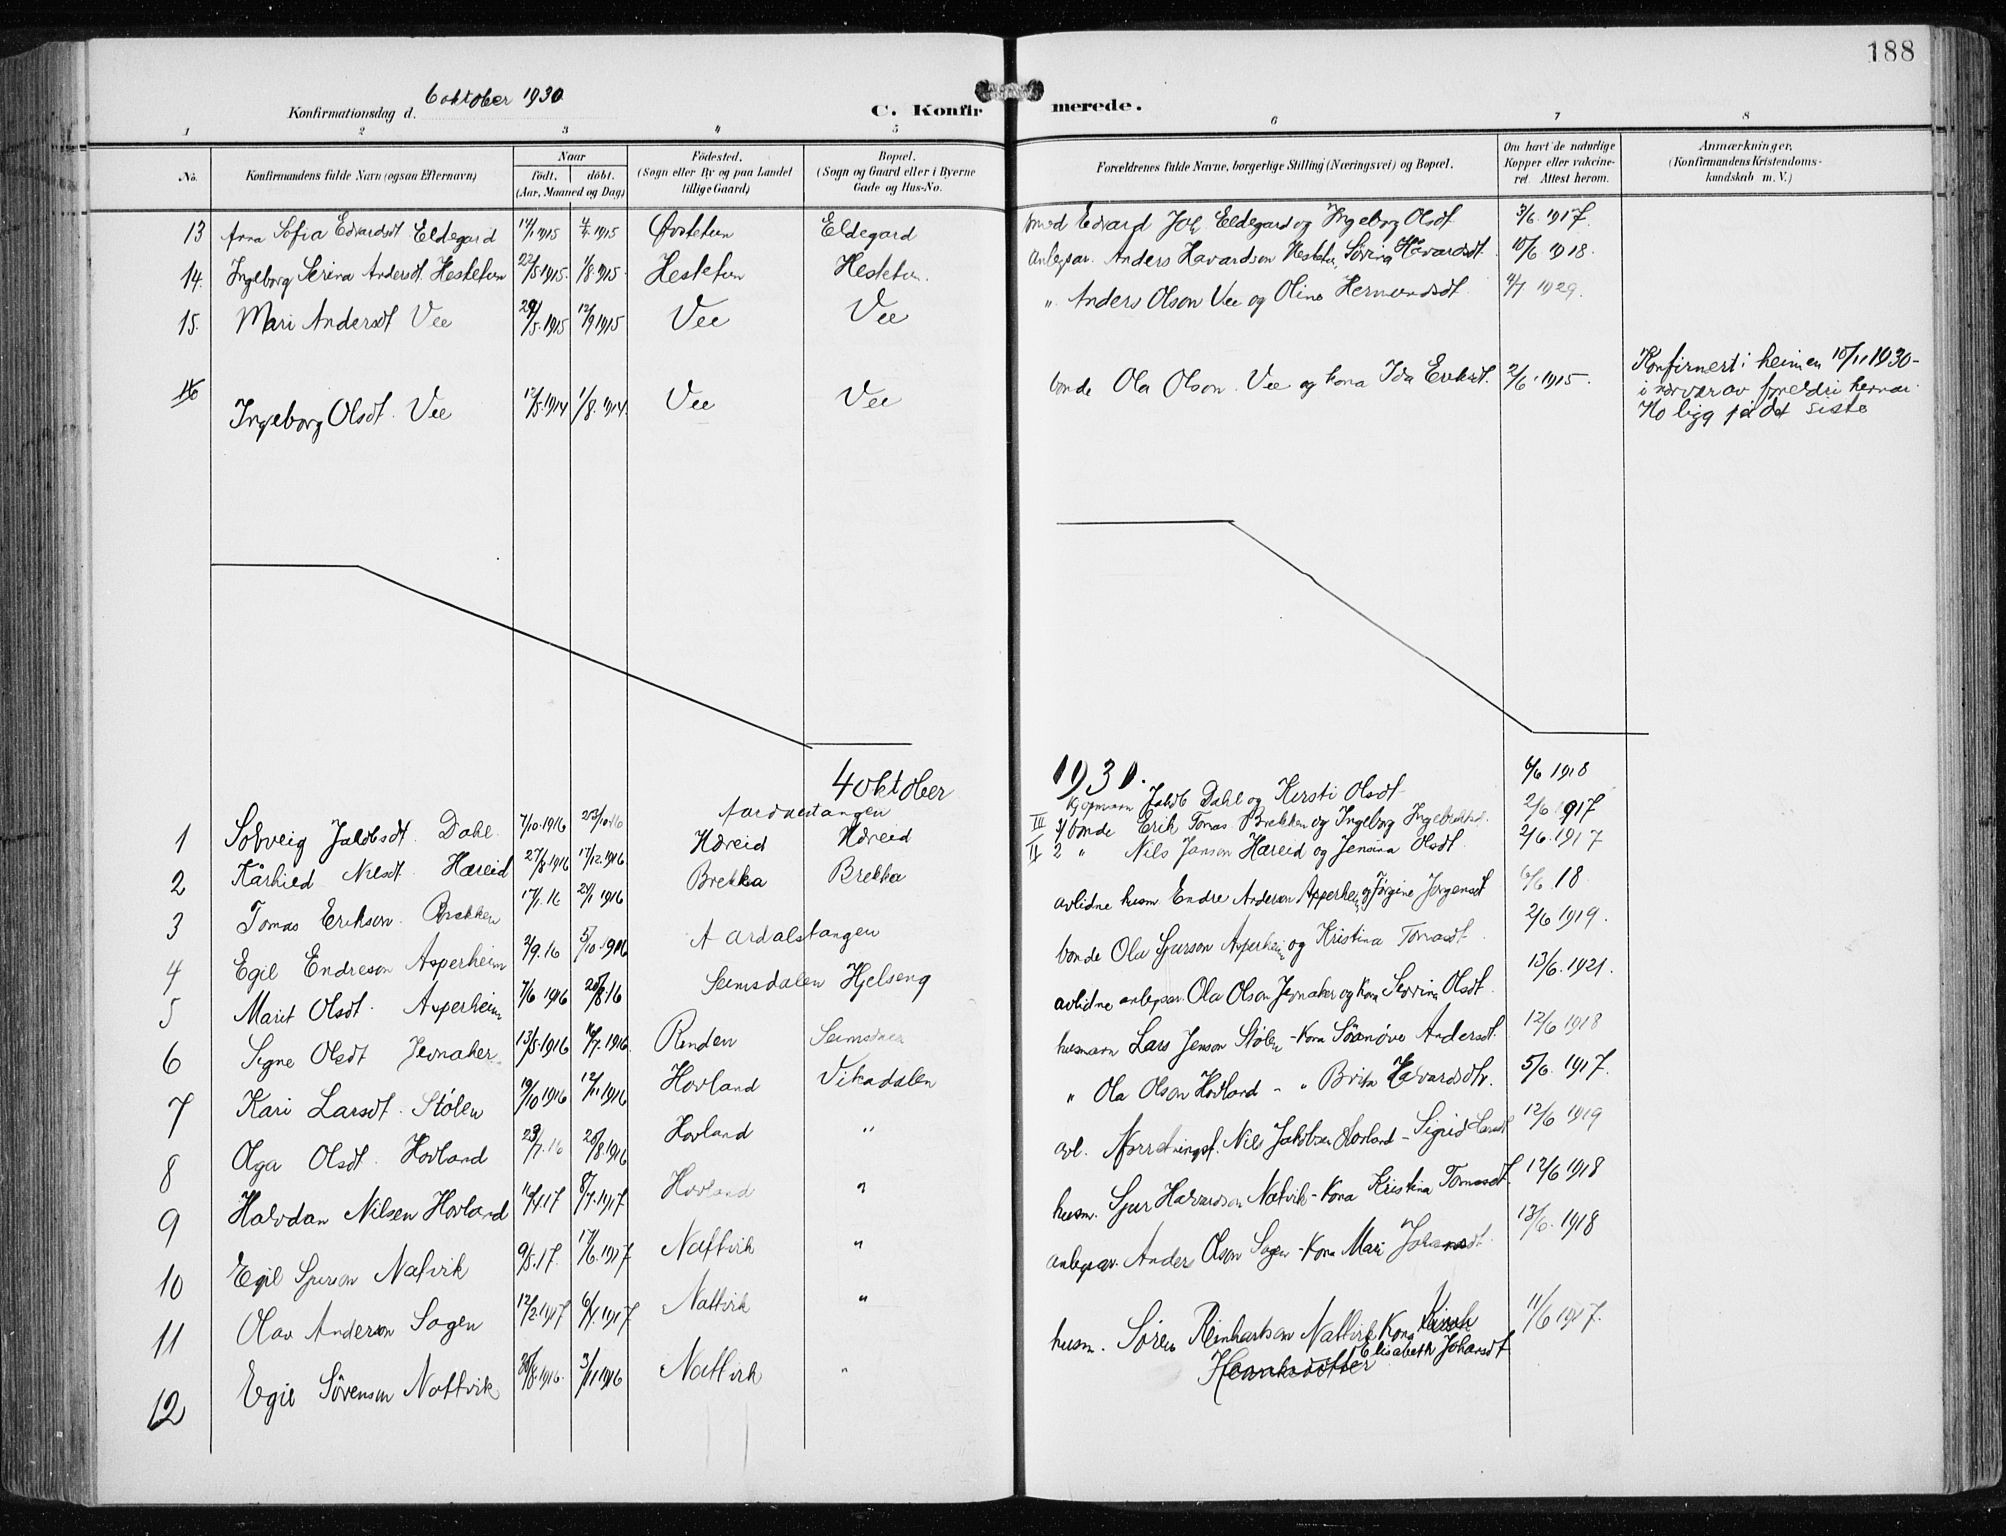 188
Konfirmationsdag d. 6 oktober 1930
C. Konfirmerede.
1 2 3 4 5 6 7 8
No. Konfirmandens fulde Navn (ogsaa Efternavn) Naar født. døbt. (Aar, Maaned og Dag) Fødested. (Sogn eller By og paa Landet tillige Gaard) Bopæl. (Sogn og Gaard eller i Byerne Gade og Hus-No. Forældrenes fulde Navne, borgerlige Stilling (Næringsvei) og Bopæl. Om havt de naturlige Kopper eller vakcineret. Attest herom. Anmærkninger. (Konfirmandens Kristendomskundskab m. V.)
13 Anna Sofia Edvardsdt Eldegard 1915 1915 Øvstetun Eldegard Edvard Joh Eldegard og Ingeborg Olsdt 3/6 1917.
14. Ingeborg Serina Andersdt. Hestetun 22/5 1915. 1/8 1915. Hestetun Hestetun. anlegsar. Anders Havardson Hestetun, Sørina Havardsdt. 10/6 1918.
15. Mari Andersdt Vee 29/5 1915 12/9 1915 Vee Vee " Anders Olson Vee og Oline Hermundsdt. 1929.
16 Ingeborg Olsdt. Vee 12/5 1914 1/8. 1914. Vee Vee bonde Ola Olson Vee og kona Ida Eriksdt. 2/6. 1915. Konfirmert i heimen 10/11 1930-
i nærvær av foreldri hennar.
Ho ligg på det siste
4 oktober 1931.
1 Solveig Jakobsdt. Dahl 7/10. 1916 23/10 16 Aardalstangen Kjøpmann Jakob Dahl og Kirsti Olsdt 6/6 1918
III 3/ bonde Erik Tomas Brekken og Ingeborg Ingebrektsd. 2/6 1917
2 Kårhild Nilsdt. Hæreid 27/8 1916 17/12. 1916. Hæreid Hæreid II 2 " Nils Janson Hæreid og Jensina Olsdt. 2/6. 1917
3 Tomas Erikson Brekken 17/1. 16 21/1 1916 Brekka Brekka
4 Egil Endreson Asperheim 2/9. 16 5/10. 1916 Aardalstangen avlidne husm Endre Anderson Asperheim og Jørgine Jørgensdt 6/6. 18
5 Marit Olsdt. Asperheim 7/6 1916 20/8 16 Seimsdalen Hjelseng bonde Ola Sjurson Asperheim og Kristina Tomasdt. 2/6 1919.
6 Signe Olsdt Jevnaker 13/5 1916 16/7. 1916. Renden Seimsdalen avlidne anlegsar. Ola Olson Jevnaker og kona Severina Olsdt. 13/6. 1921.
7 Kari Larsdt. Stølen 19/10 1916 12/11 1916 Hovland Vikadalen husmann Lars Jenson Stølen - kona Synnøve Andersdt. 12/6 1918
8 Olga Olsdt. Hovland 23/7. 16 20/8. 1916 Hovland " " Ola Olson Hovland - " Brita Havardsdtr. 5/6. 1917.
9 Halvdan Nilsen Hovland 11/4 17 8/7. 1917 Hovland " avl. Nils Jakobsen Hovland - Sigrid Larsdt 12/6 1919
10 Egil Sjurson Natvik 9/5. 17. 17/6. 1917 Nattvik " husm. Sjur Halvardson Natvik - kona Kristina Tomasdt. 12/6 1918
11 Olav Anderson Sagen 12/2. 1917 1917 Nattvik " anlegsar. Anders Olson Sagen - kona Mari Johansdt. 13/6. 1918
12 Egil Sørenson Nattvik 20/8. 1916. 3/11 1916 Nattvik " husm. Søren Reinhartson Nattvik Kona Elisabeth Johansdt 11/6 1917.